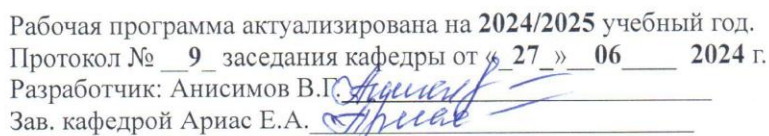 Рабочая программа актуализирована на 2024/2025 учебный год.
Протокол № __9_ заседания кафедры от «_27_»__06____ 2024 г.
Разработчик: Анисимов В.Г.
Зав. кафедрой Ариас Е.А.